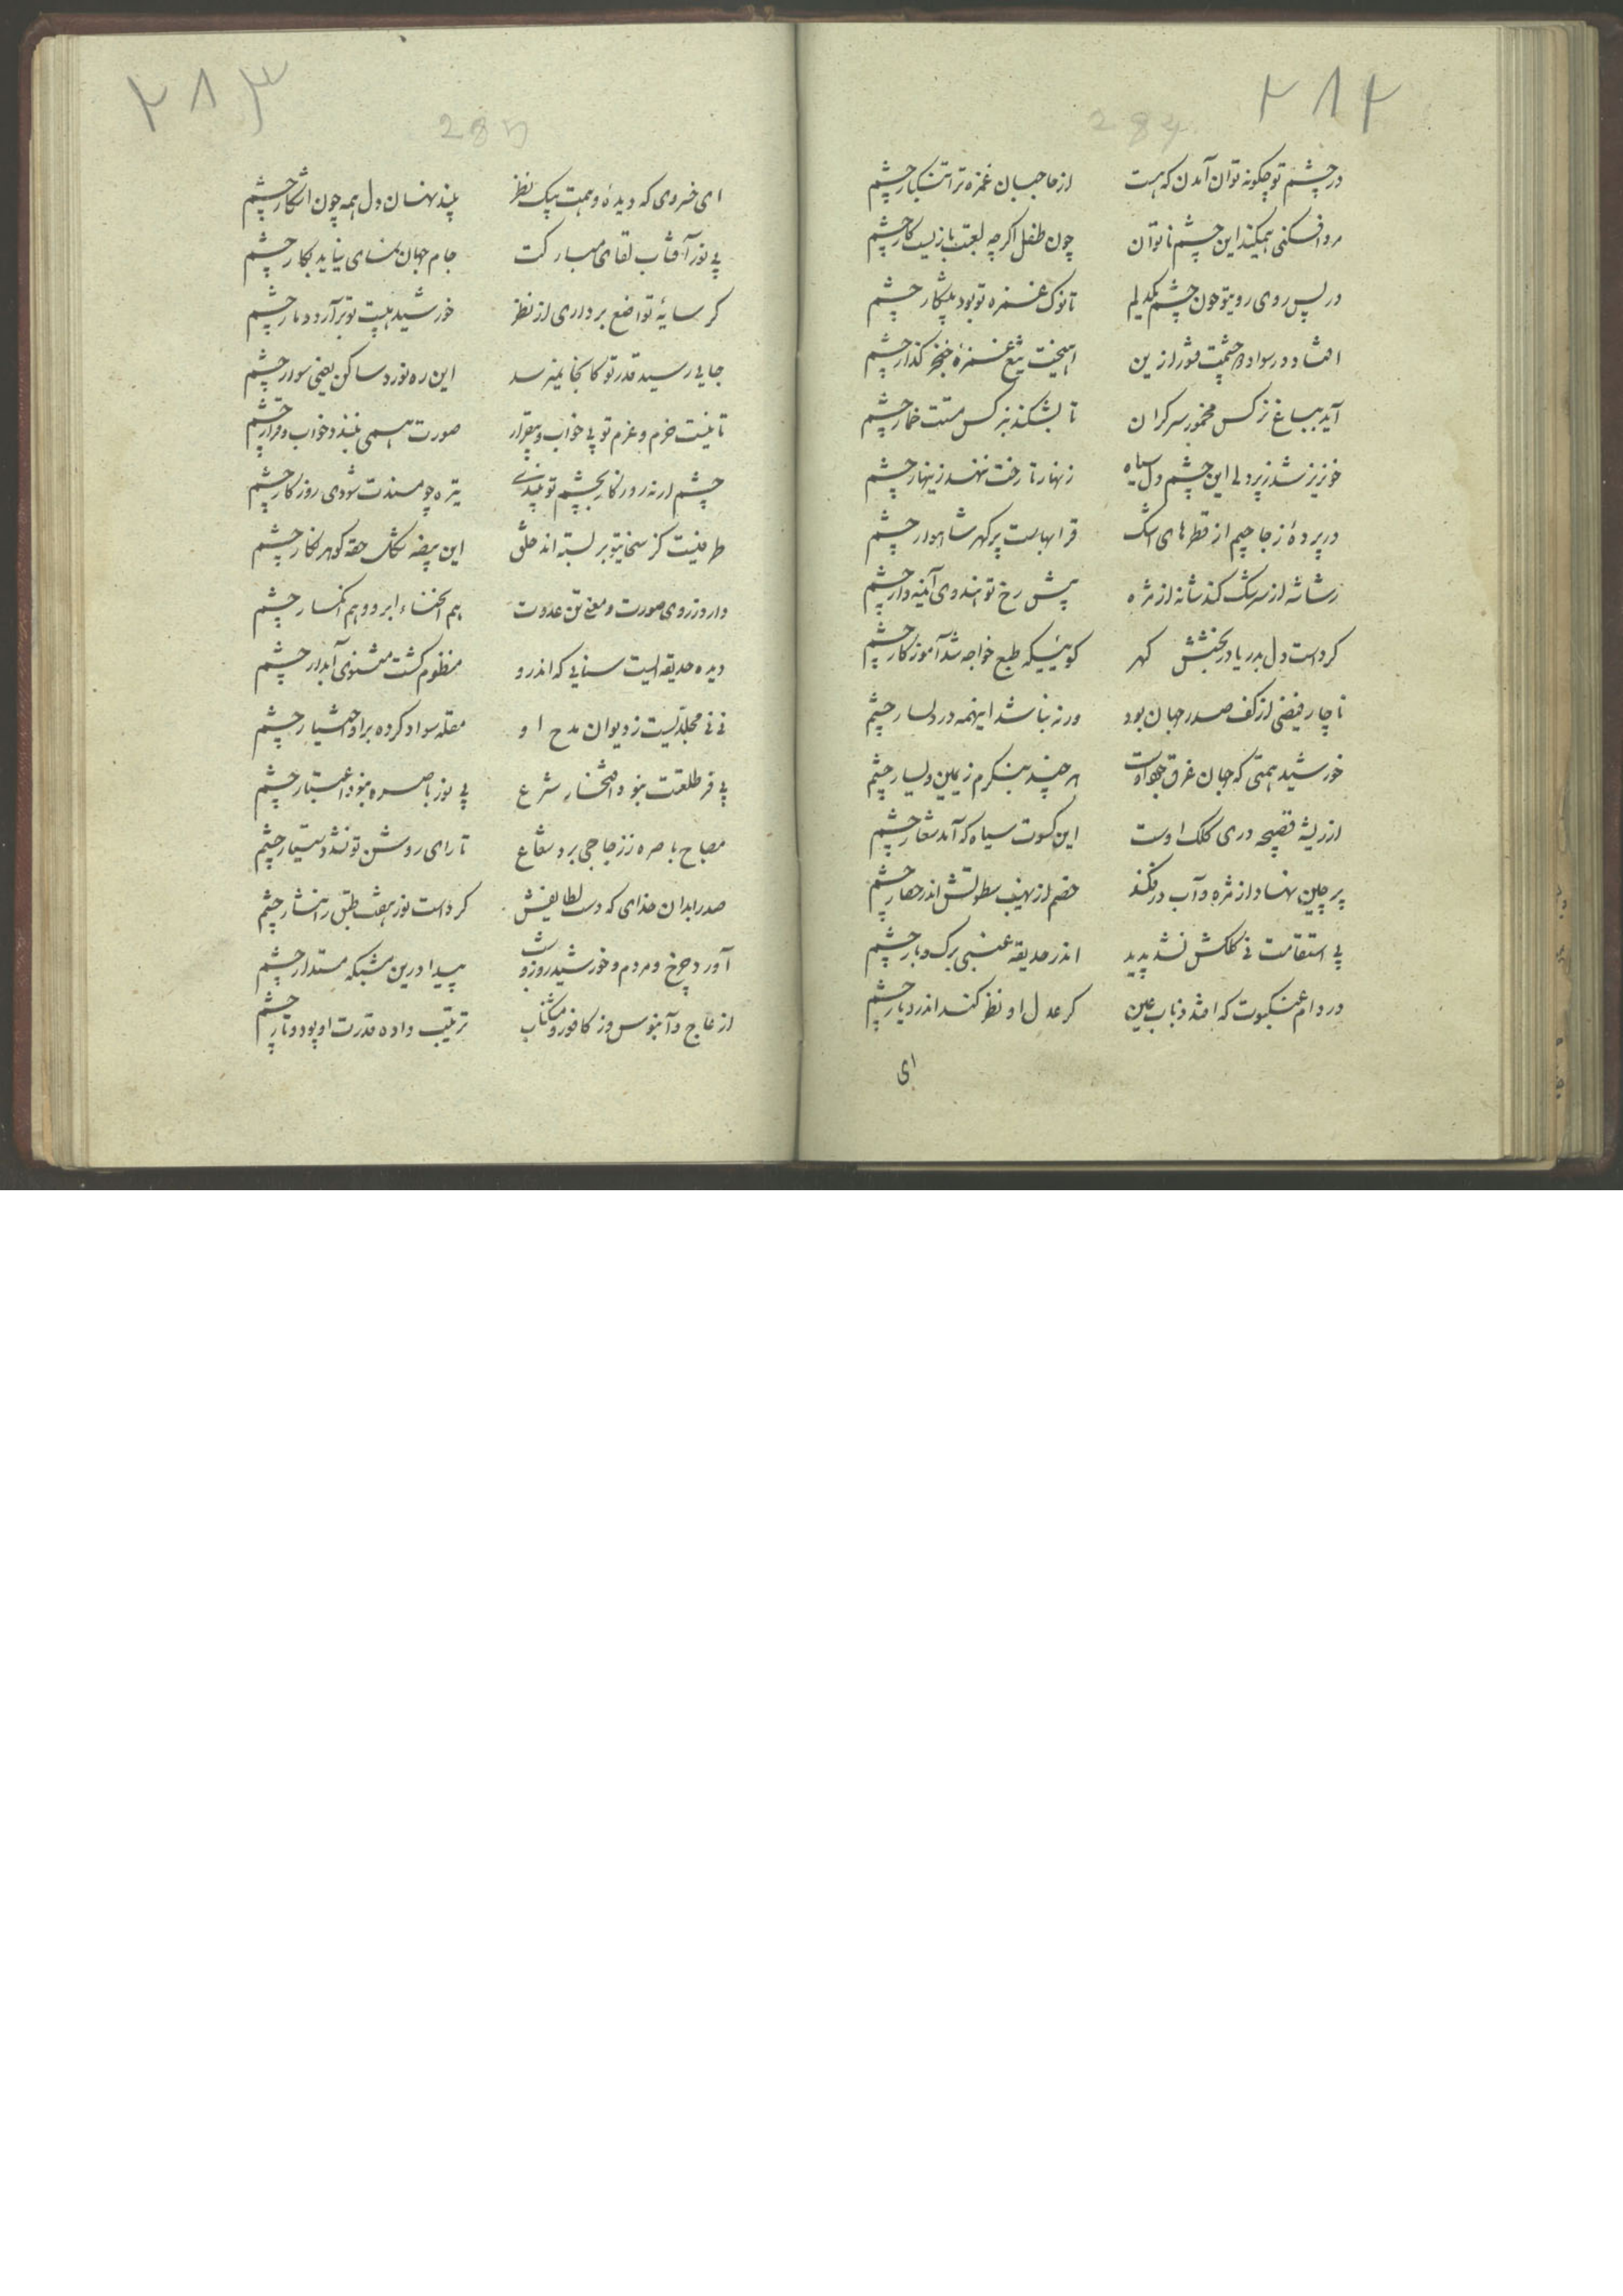 ۲۸۲
284
در چشم تو چگونه توان آمدن که هست از حاجبان غمزه ترا تنگبار چشم
مردافکنی همیکند این چشم ناتوان چون طفل اکرچه لعبت بازیست کار چشم
در پس روی رویتو خون چشم یکدلم تا نوک غمزه تو بود پیشکار چشم
افتاد در سواد چشمت فتور ازین اهیخت تیغ غمزهٔ خنجر کذار چشم
آید بباغ نرکس مخمور سرکران تا بشکند بنرکس مستت خمار چشم
خونریز شد ز پردلی این چشم دل سیاه زنهار تا رخت ننهد زینهار چشم
در پردهٔ زجاجیم از قطرهای اشک قرابهاست پر کهر شاهوار چشم
شانه از مژه پیش رخ تو هندوی آینه دار چشم
کرد است دل بدریا در بخشش کهر کوئیکه طبع خواجه شد آموزکار چشم
ناچار فیضی از کف صدر جهان بود ورنه نباشد اینهمه در یسار چشم
خورشید همتی که جهان غرق جود اوست هر چند بنکرم ز یمین و یسار چشم
از کلک اوست این کسوت سیاه که آمد شعار چشم
پرچین نهاد از مژه و آب در فکند خصم از نهیب سطوتش اندر حصار چشم
بی استقامت نی کلکش نشد پدید اندر حدیقه عنبی برک و بار چشم
در دام عنکبوت که افتد ذباب عین کر عدل او نظر کند اندر دیار چشم
ای
۲۸۳
285
ای خسروی که دیدهٔ وهمت بیک نظر بیند نهان دل همه چون آشکار چشم
بی نور آفتاب لقای مبارکت جام جهان نمای نیاید بکار چشم
کر سایهٔ تواضع برداری از نظر خورشید هیبت تو برآرد دمار چشم
جایی رسید قدر تو کانجا نمیرسد این ره نورد ساکن یعنی سوار چشم
تا نیست حزم و عزم تو بی خواب و بیقرار صورت همی نبندد خواب و قرار چشم
چشم ار نه روزکار بچشم تو بیندی تیره چو مسندت شودی روزکار چشم
طرفیست کز سخایتو بربسته اند خلق این بیضه شکل حقه کوهر نکار چشم
دارد ز روی صورت و معنی تن عدوت هم انحناء ابرو و هم انکسار چشم
دیده حدیقه ایست سنایی که اندرو منظوم کشت مثنوی آبدار چشم
نی نی مجلدیست ز دیوان مدح او مقله سواد کرده برای اختیار چشم
بی فر طلعتت نبود افتخار شرع بی نور باصره نبود اعتبار چشم
مصباح باصره ز زجاجی برد شعاع تا رای روشن تو نشد دستیار چشم
صدرا بدان خدای که دست لطایفش کرد است نور هفت طبق را نثار چشم
آورد چرخ و مردم و خورشید روز و شب پیدا درین مشبکه مستدار چشم
از عاج و آبنوس وز کافور و مشک ناب ترتیب داده قدرت او پود و تار چشم